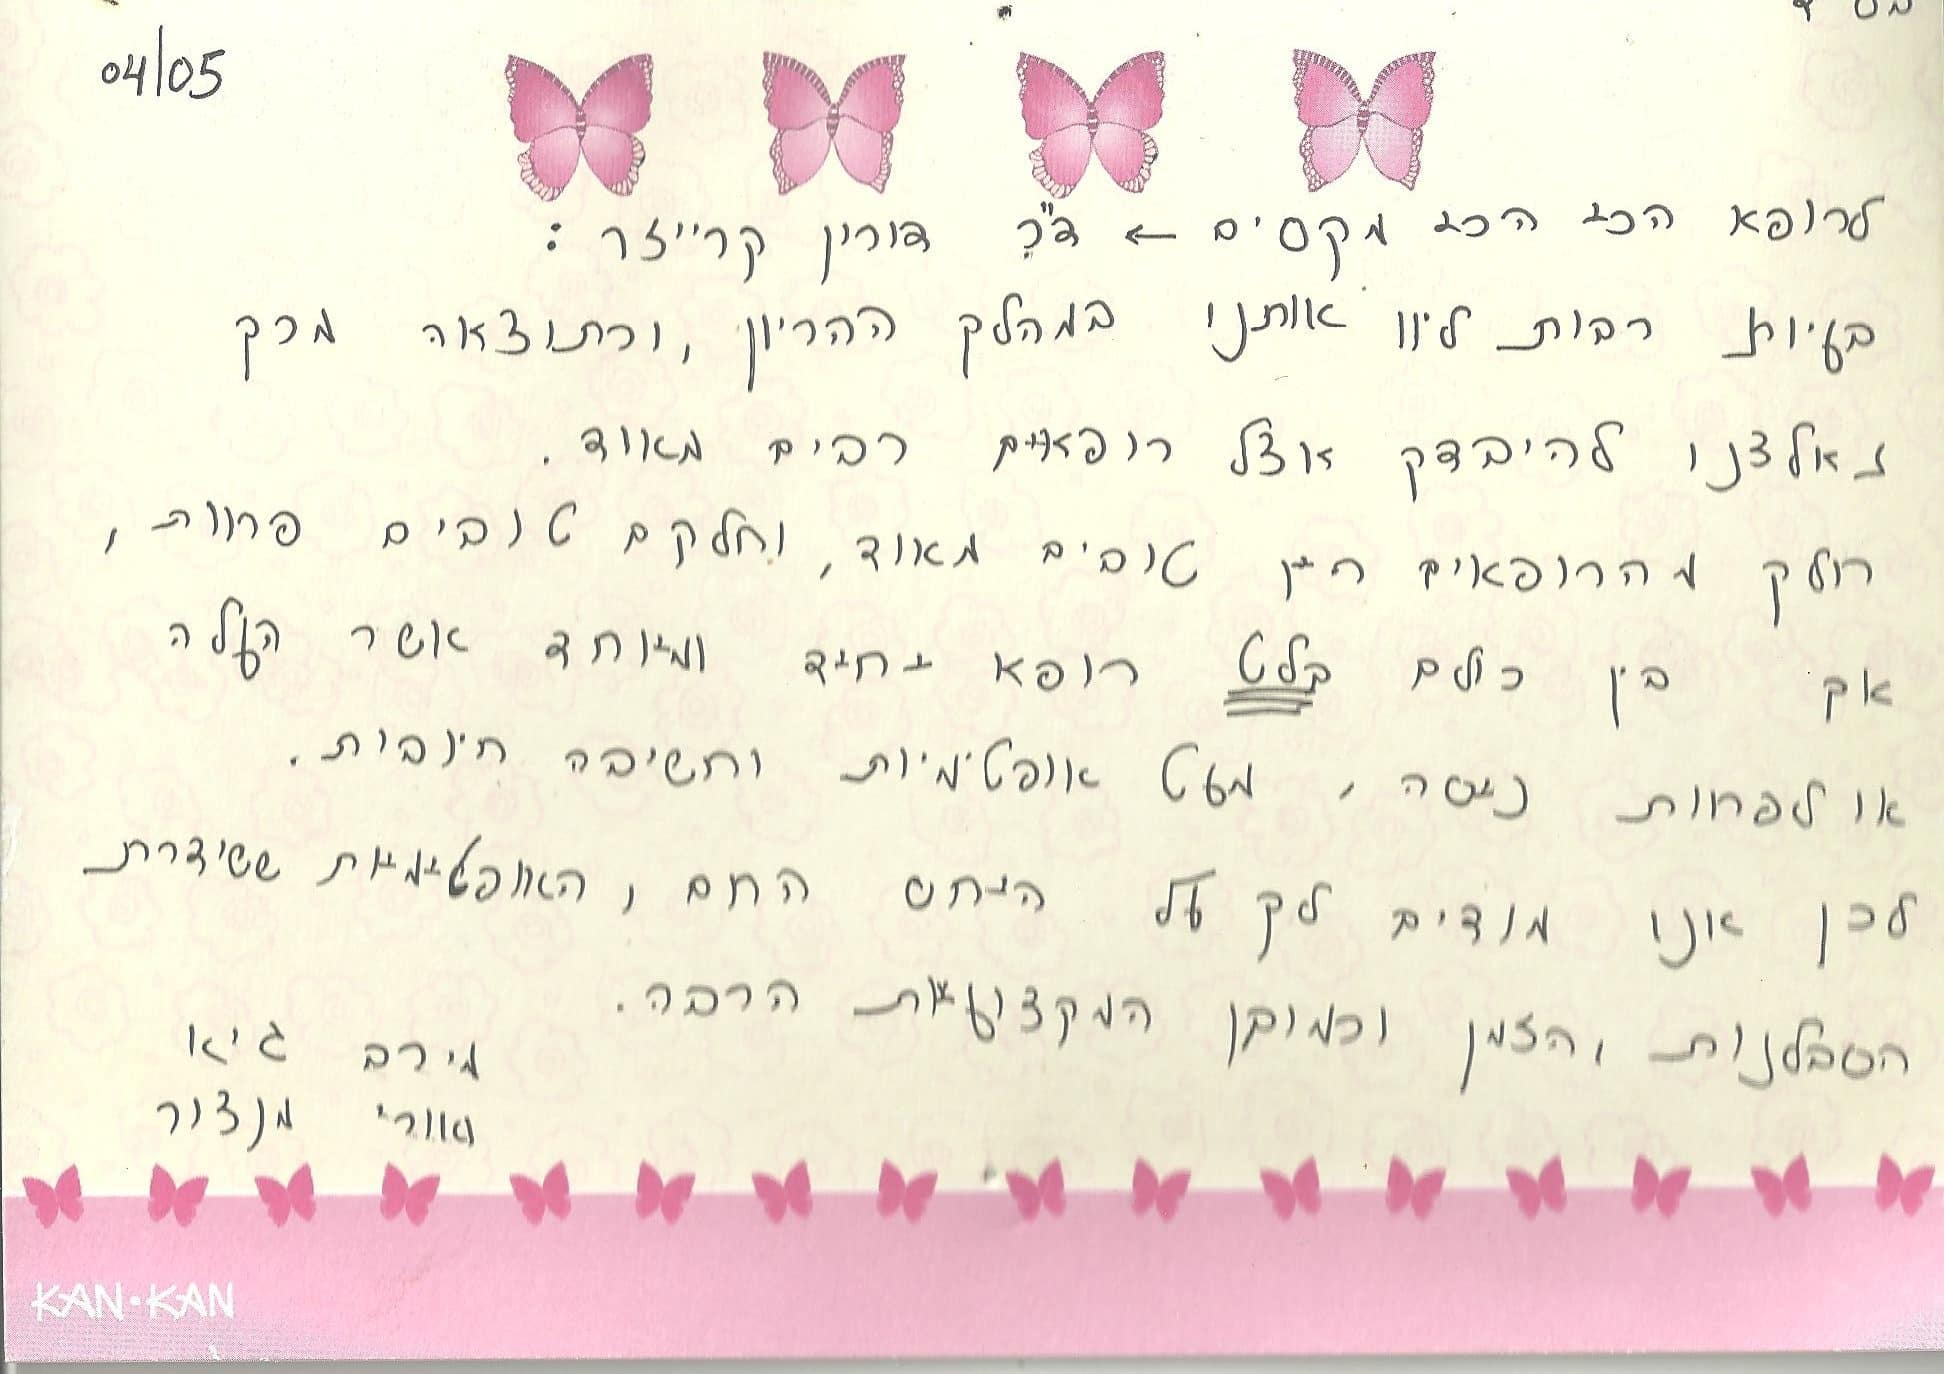 בס"ד
04/05
לרופא הכי הכי מקסים ← ד"ר דורין קרייזר :
בעיות רבות ליוו אותנו במהלך ההריון, וכתוצאה מכך
נאלצנו להיבדק אצל רופאים רבים מאוד.
חלק מהרופאים היו טובים מאוד, וחלקם טובים פחות,
אך בין כולם בלט רופא יחיד ומיוחד אשר העלה
או לפחות ניסה, מעט אופטימיות וחשיבה חיובית.
לכן אנו מודים לך על היחס החם, האופטימיות ששידרת
הסבלנות, הזמן וכמובן המקצועיות הרבה.
מירב גיא
ואורי מנצור
KAN·KAN